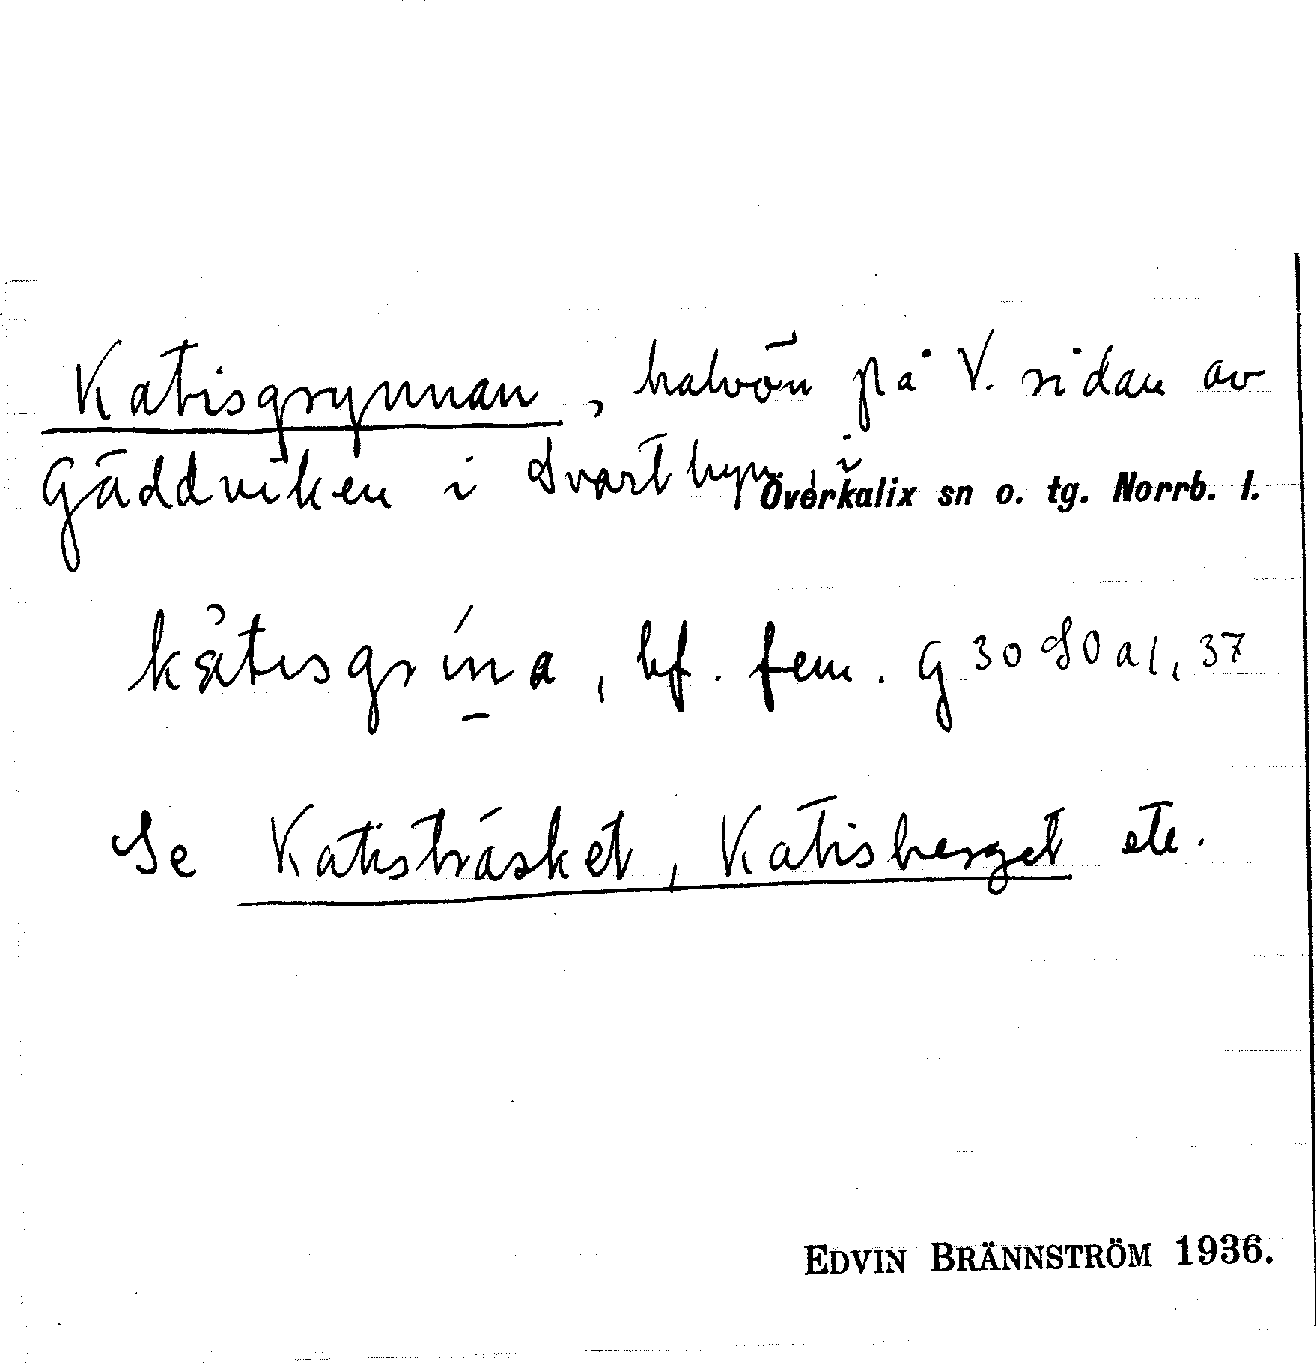 Katisgrynnan, halvön på V. sidan av
Gäddviken i Svartbyn, i Överkalix sn o. tg. Norrb. l.
kàtısgrína, bf. fem. G 30 80 a1, 37
Se Katisträsket, Katisberget etc.
EDVIN BRÄNNSTRÖM 1936.